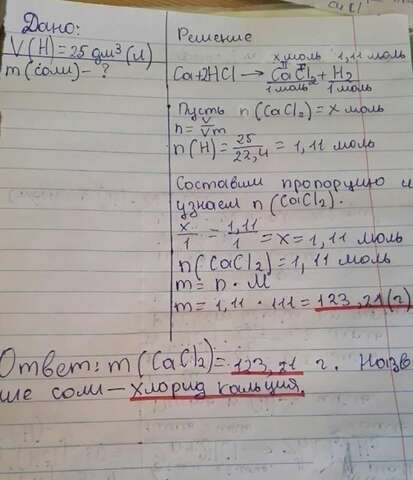 Дано:
V(H)=25 дм³(л)
m(соли)-?
Решение
x моль 1,11 моль
Ca+2HCl→CaCl₂+H₂
1 моль 1 моль
Пусть n(CaCl₂)=x моль
n=V/Vm
n(H)=25/22,4=1,11 моль
Составим пропорцию и
узнаем n(CaCl₂).
x/1=1,11/1=x=1,11 моль
n(CaCl₂)=1,11 моль
m=n·M
m=1,11·111=123,21(г)
Ответ: m(CaCl₂)=123,21 г. Назв
ие соли-хлорид кальция.